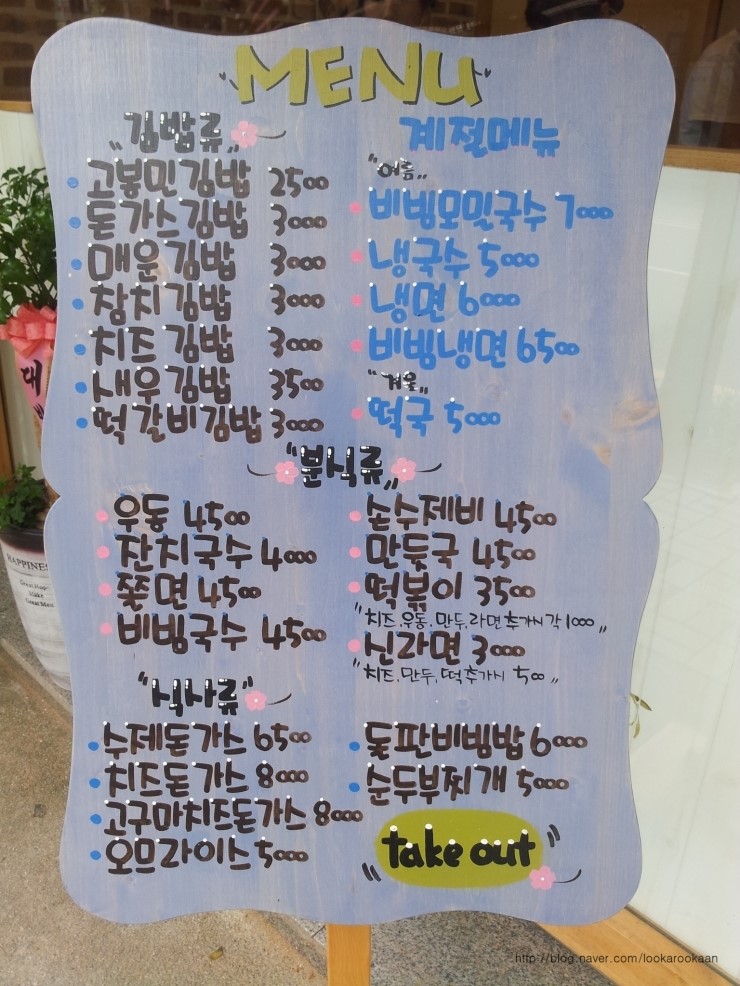 MENU
"김밥류"
고봉민김밥 2500
돈가스김밥 3000
매운김밥 3000
참치김밥 3000
치즈김밥 3000
새우김밥 3500
떡갈비김밥 3000
계절메뉴
"여름"
비빔모밀국수 7000
냉국수 5000
냉면 6000
비빔냉면 6500
"겨울"
떡국 5000
"분식류"
우동 4500
잔치국수 4000
쫄면 4500
비빔국수 4500
손수제비 4500
만둣국 4500
떡볶이 3500
"치즈.우동.만두.라면추가시 각1000"
신라면 3000
"치즈.만두.떡추가시 500"
"식사류"
수제돈가스 6500
치즈돈가스 8000
고구마치즈돈가스 8000
오므라이스 5000
돌판비빔밥 6000
순두부찌개 5000
"take out"
대
HAPPINES
http://blog.naver.com/lookarookaan